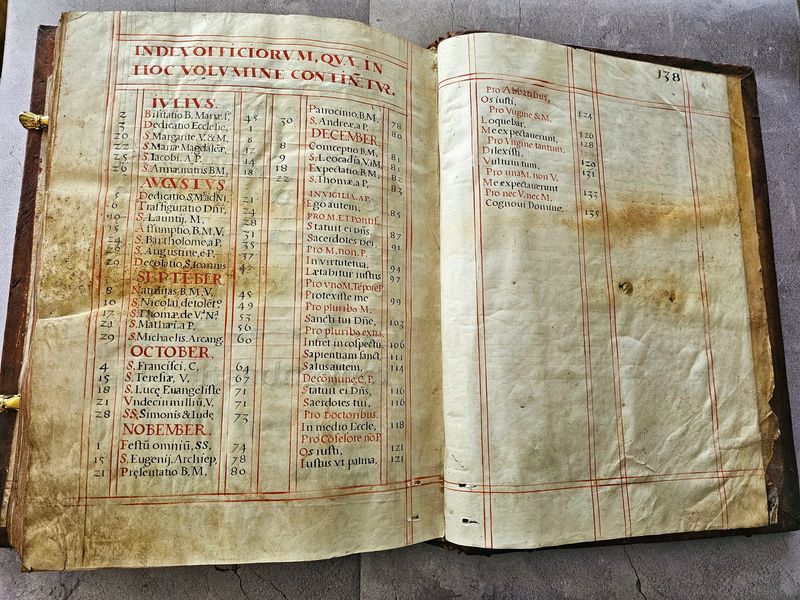 INDEX OFFICIORVM, QVÆ IN
HOC VOLVMINE CONTINĒTVR.
IVLIVS.
2 Bisitatio B. Mariæ 45
3 Dedicatio Ecclesie, 1
20 S. Margarite. V. & M. 8
22 S. Mariæ Magdalẽæ, 12
25 S. Iacobi. A. P. 14
26 S. Annæ matris BM, 18
AVGVSTVS.
5 Dedicatio, S. Mᵉ ad Ni. 21
6 Trãsfiguratio Dñi, 24
10 S. Laurẽtij. M. 28
15 Assumptio, B, M, V 31
24 S. Bartholome, a P. 35
28 S. Augustine, e P. 37
29 Decolatio S. Ioannis
SEPTẼBER
8 Natiuitas, B, M, V. 45
10 S. Nicolai de tolẽtᵒ 49
17 S. Thomæ de Vᵃ Nᵃ 53
21 S. Mathæi. a P. 56
29 S. Michaelis, Arcang. 60
OCTOBER.
4 S. Francisci, C, 64
15 S. Teresiæ, V. 67
18 S. Lucę Euangeliste 71
21 Vndecim milliũ, V. 71
28 SS, Simonis & Iudę 73
NOBEMBER.
1 Festũ omniũ, SS, 74
15 S. Eugenij. Archiep, 78
21 Presentatio B. M, 80
Patrocinio, B M, 78
30 S. Andreæ, a P, 80
DECEMBER.
8 Conceptio B M, 81
9 S. Leocadiæ, V. & M, 81
18 Expectatio, B M, 82
22 S. Thomæ, a P, 83
IN VIGILIA. AP.
Ego autem, 85
PRO M. ET Pontif.
Statuit ei Dñs, 87
Sacerdotes Dei, 91
Pro M, non P.
In virtute tua, 94
Lætabitur iustus 97
Pro vno M, Tẽpore P.
Protexiste me 99
Pro pluribꝰ M.
Sancti tui Dñe, 103
Pro pluribꝰ extra.
Intret in cõspectu, 106
Sapientiam sanct. 111
Salus autem, 114
De comune, C, P.
Statuit ei Dñs, 116
Sacerdotes tui, 116
Pro Doctoribus.
In medio Eccle, 118
Pro Cõfesore no P.
Os iusti, 121
Iustus vt palma, 121
138
Pro Abbatibus,
Os iusti, 124
Pro Virgine & M,
Loquebar, 126
Me expectauerunt, 128
Pro Virgine tantum,
Dilexisti, 129
Vultum tuum, 131
Pro una M, non V.
Me expectauerunt 133
Pro nec V, nec M,
Cognoui Domine, 135